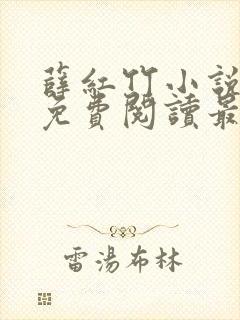 薛紅竹小說
免費閱讀最
雷湯布林